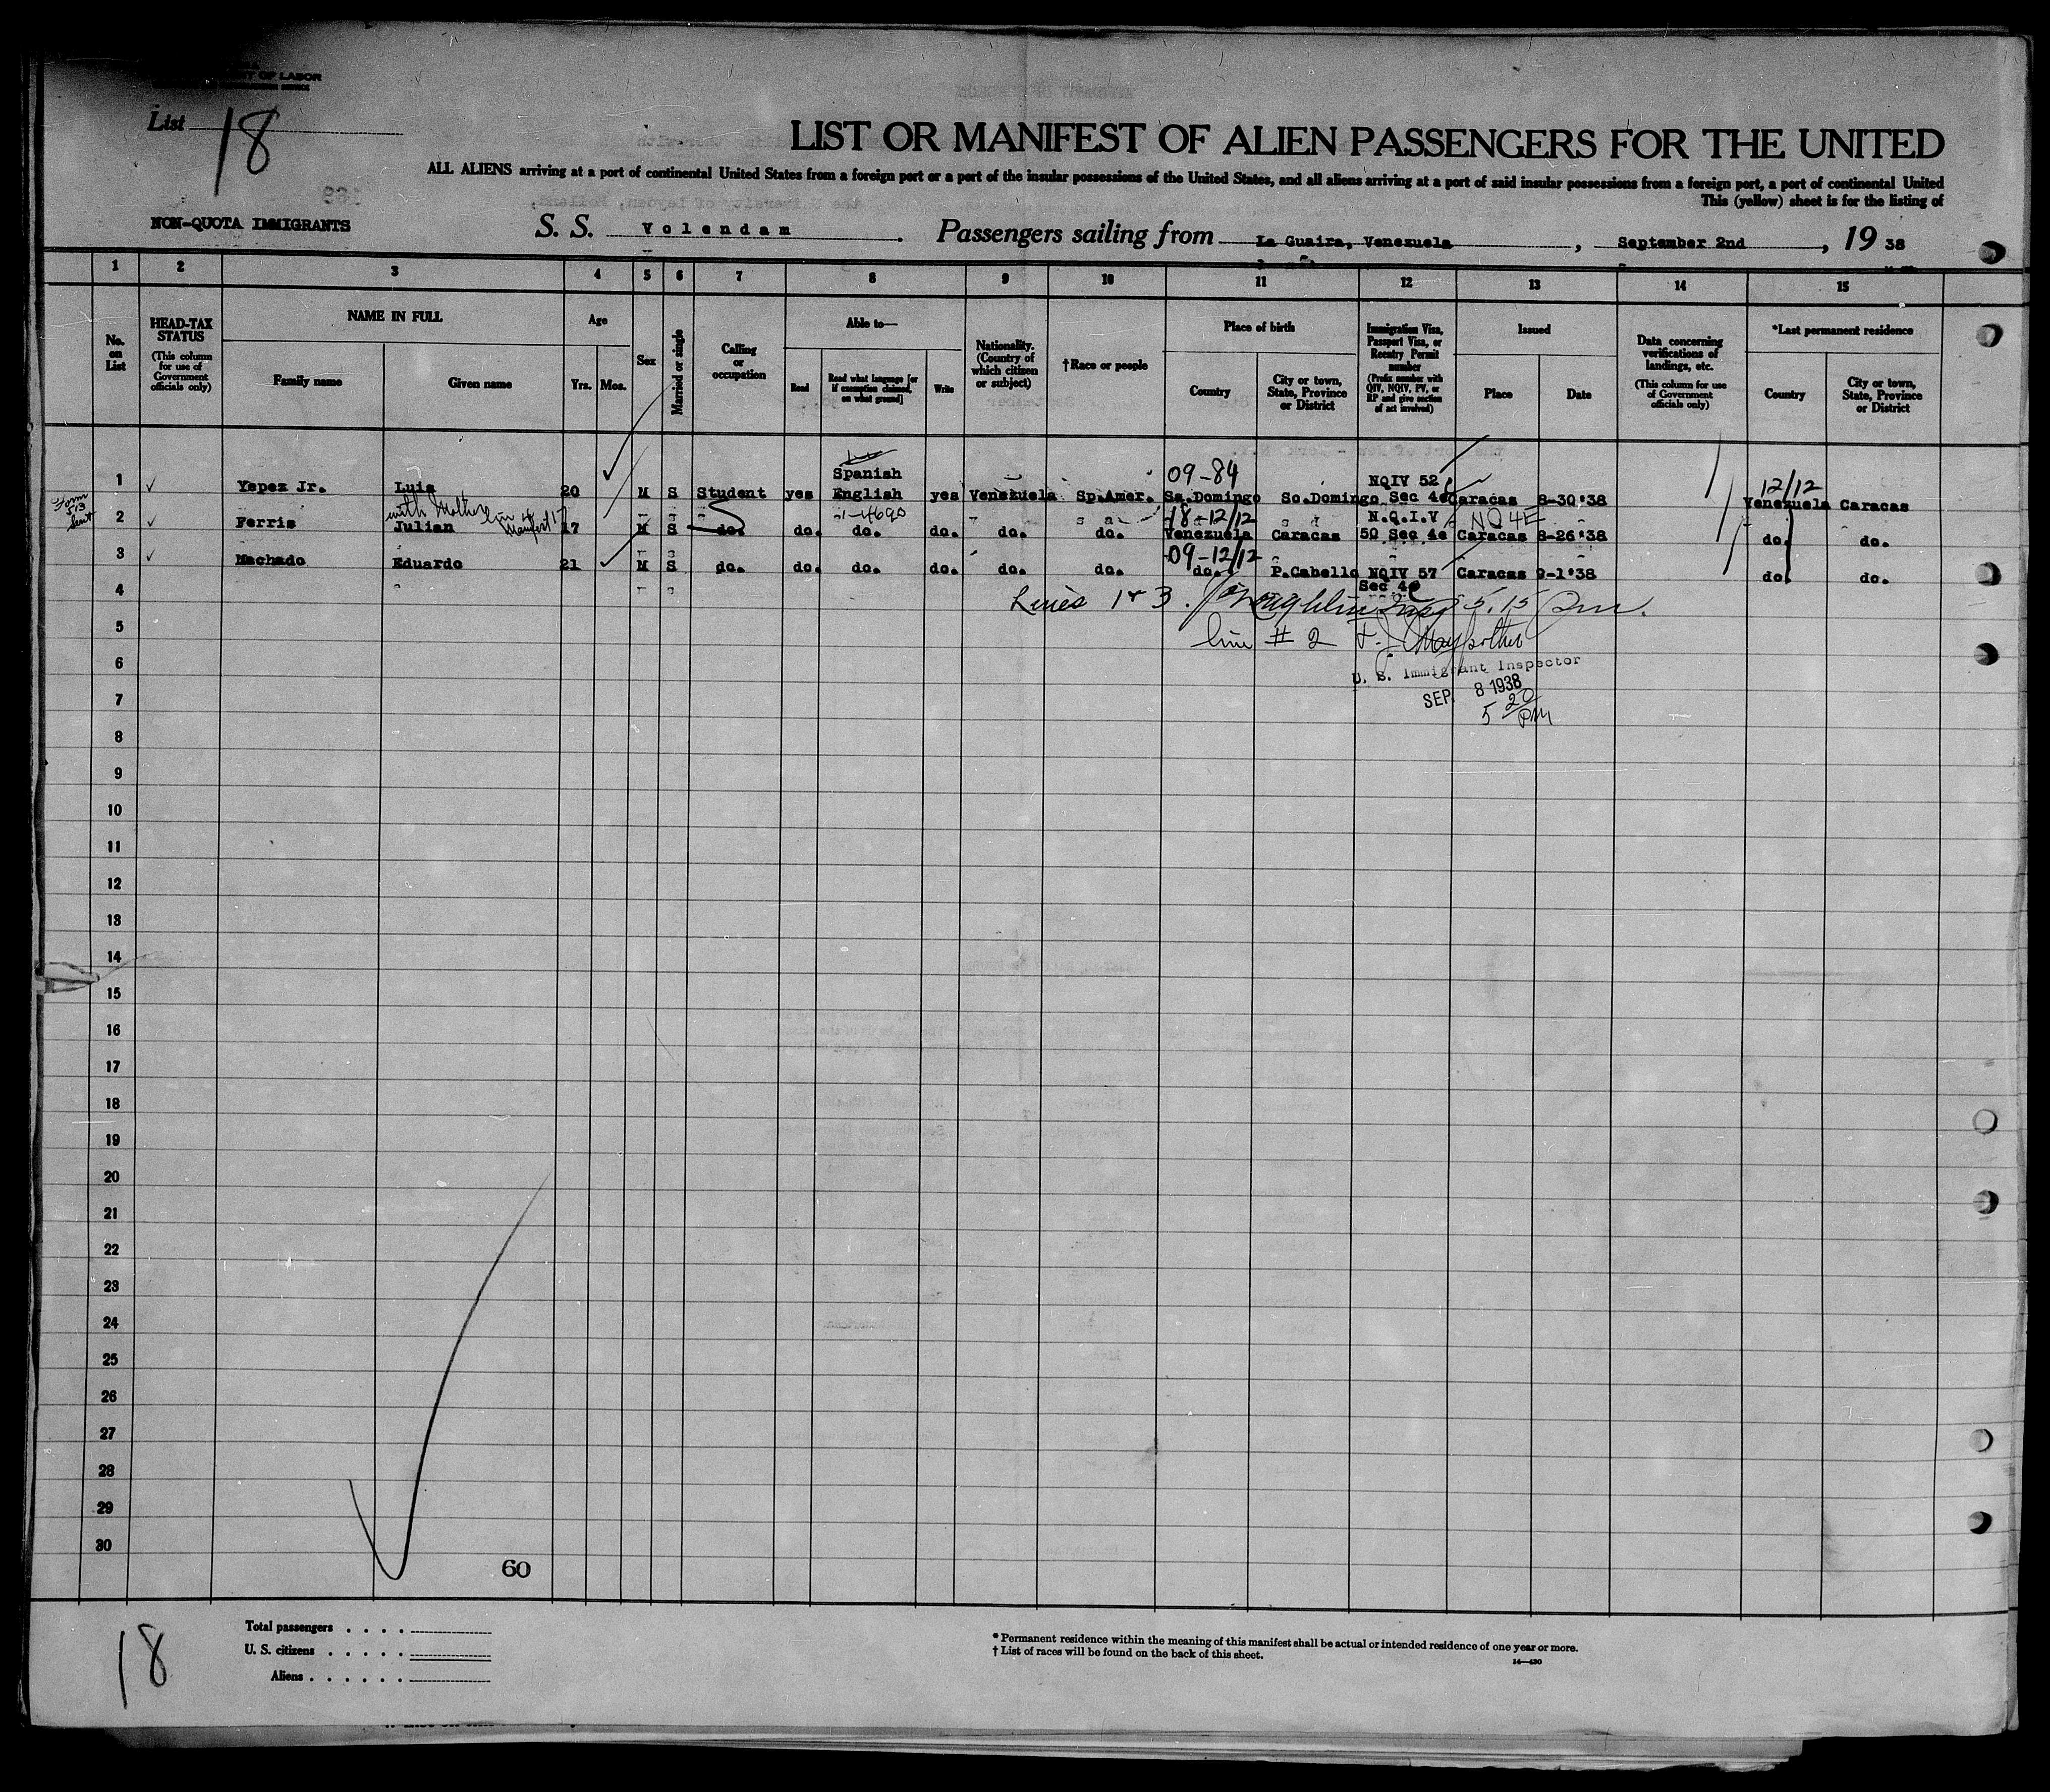 OF LABOR
List 18
LIST OR MANIFEST OF ALIEN PASSENGERS FOR THE UNITED
ALL ALIENS arriving at a port of continental United States from a foreign port or a port of the insular possessions of the United States, and all aliens arriving at a port of said insular possessions from a foreign port, a port of continental United
This (yellow) sheet is for the listing of
NON-QUOTA IMMIGRANTS
S. S. Volendam. Passengers sailing from La Guaira, Venezuela, September 2nd, 19 38
1 2 3 4 5 6 7 8 9 10 11 12 13 14 15
No. on List
HEAD-TAX STATUS (This column for use of Government officials only)
NAME IN FULL
Family name
Given name
Age
Yrs. Mos.
Sex
Married or single
Calling or occupation
Able to—
Read
Read what language [or if exemption claimed, on what ground]
Write
Nationality. (Country of which citizen or subject)
†Race or people
Place of birth
Country
City or town, State, Province or District
Immigration Visa, Passport Visa, or Reentry Permit number (Prefix number with QIV, NQIV, PV, or RP and give section of act involved)
Issued
Place
Date
Data concerning verifications of landings, etc. (This column for use of Government officials only)
*Last permanent residence
Country
City or town, State, Province or District
Spanish 09-84 NQIV 52 12/12
1 ✓ Yepez Jr. Luis 20 M S Student yes English yes Venezuela Sp.Amer. Sa.Domingo So.Domingo Sec 4e Caracas 8-30'38 Venezuela Caracas
Form 513 sent
with Mother line 4 Manifest 17 1-4690 18-12/12 N.Q.I.V NQ4E
2 ✓ Ferris Julian 17 M S do. do. do. do. do. do. Venezuela Caracas 50 Sec 4e Caracas 8-26'38 do. do.
09-12/12
3 ✓ Machado Eduardo 21 M S do. do. do. do. do. do. do. P.Cabello NQIV 57 Caracas 9-1'38 do. do.
Sec 4e
4
Lines 1 & 3. Insp 5.15 Pm.
5
line # 2
6
U. S. Immigrant Inspector
SEP 8 1938
7
5 20 PM
8
9
10
11
12
13
14
15
16
17
18
19
20
21
22
23
24
25
26
27
28
29
30
60
18
Total passengers . . . .
U. S. citizens . . . . .
Aliens . . . . . .
* Permanent residence within the meaning of this manifest shall be actual or intended residence of one year or more.
† List of races will be found on the back of this sheet.
14—430